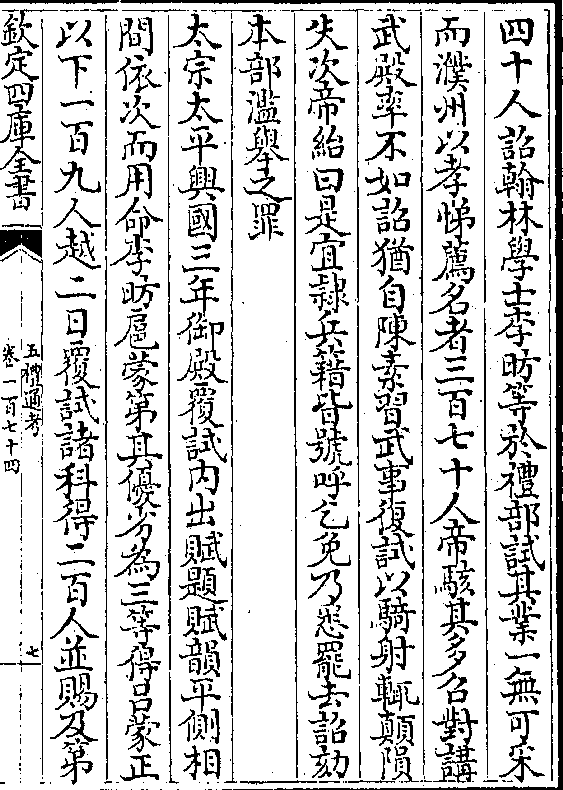 四十人詔翰林學士李昉等於禮部試其業一無可采
而濮州以孝悌薦名者三百七十人帝駭其多召對講
武殿率不如詔猶自陳素習武事復試以騎射輒顛隕
失次帝紿曰是宜隸兵籍皆號呼乞免乃悉罷去詔劾
本部濫舉之罪
太宗太平興國三年御殿覆試内出賦題賦韻平側相
間依次而用命李昉扈蒙第其優劣為三等得吕蒙正
以下一百九人越二日覆試諸科得二百人並賜及第
欽定四庫全書
五禮通考
卷一百七十四
七